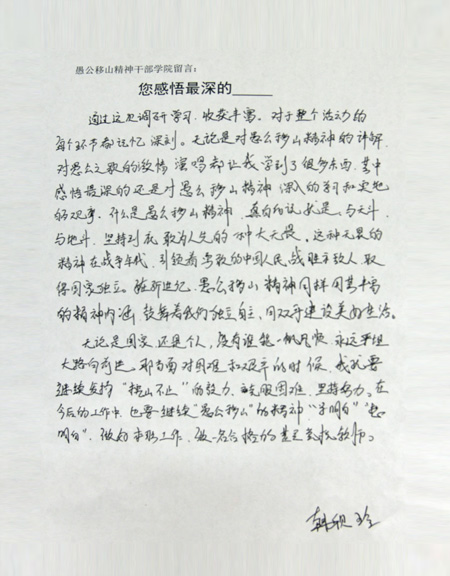 愚公移山精神干部学院留言：
您感悟最深的______
通过这次调研学习，收获丰富。对于整个活动的
每个环节都记忆深刻。无论是对愚公移山精神的讲解，
对愚公之歌的激情演唱都让我学到了很多东西，其中
感悟最深的还是对愚公移山精神深入的学习和实地
的观摩。什么是愚公移山精神，直白的说就是，与天斗，
与地斗，坚持到底，敢为人先的一种大无畏。这种无畏的
精神在战争年代，引领着勇敢的中国人民战胜了敌人，取
得国家独立。在新世纪，愚公移山精神同样用其丰富
的精神内涵鼓舞着我们独立自主，用双手建设美好生活。
无论是国家还是个人，没有谁能一帆风顺，永远平坦
大路向前进。那当面对困难和艰辛的时候，我就要
继续发扬“挖山不止”的毅力，克服困难，坚持努力。在
今后的工作中，也要继续“愚公移山”的精神“弄明白”“想
明白”，做好本职工作，做一名合格的思政教师。